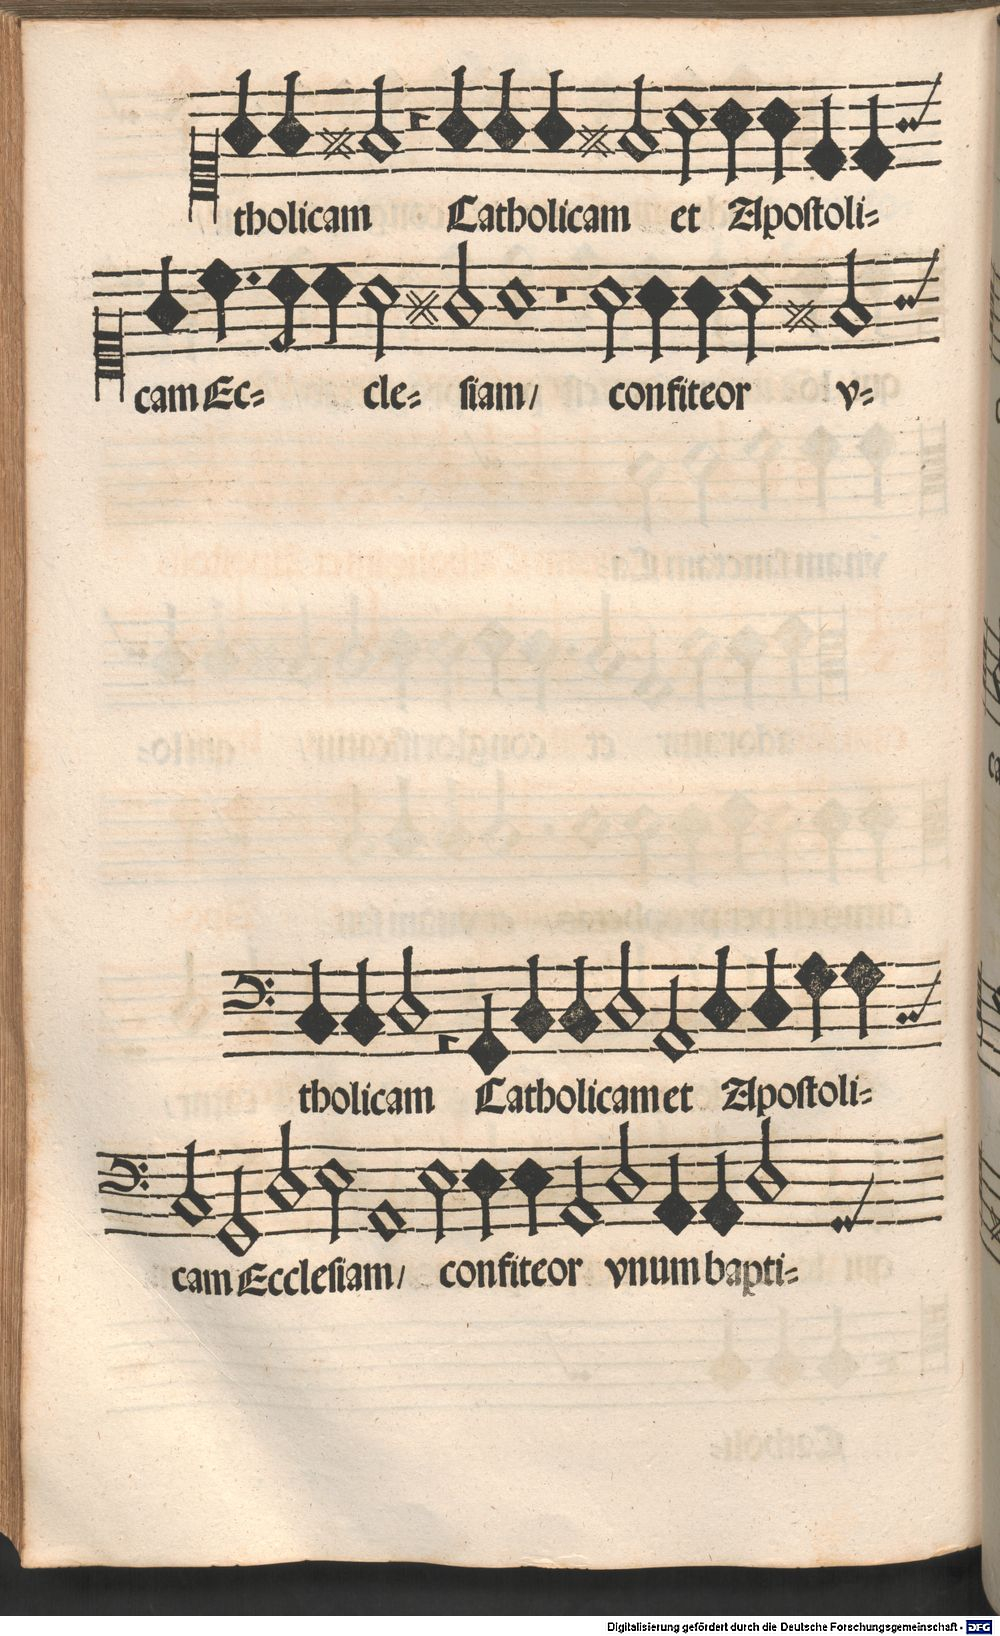 tholicam Catholicam et Apostoli=
cam Ec= cle= siam/ confiteor v=
tholicam Catholicam et Apostoli=
cam Ecclesiam/ confiteor vnum bapti=
Digitalisierung gefördert durch die Deutsche Forschungsgemeinschaft - DFG